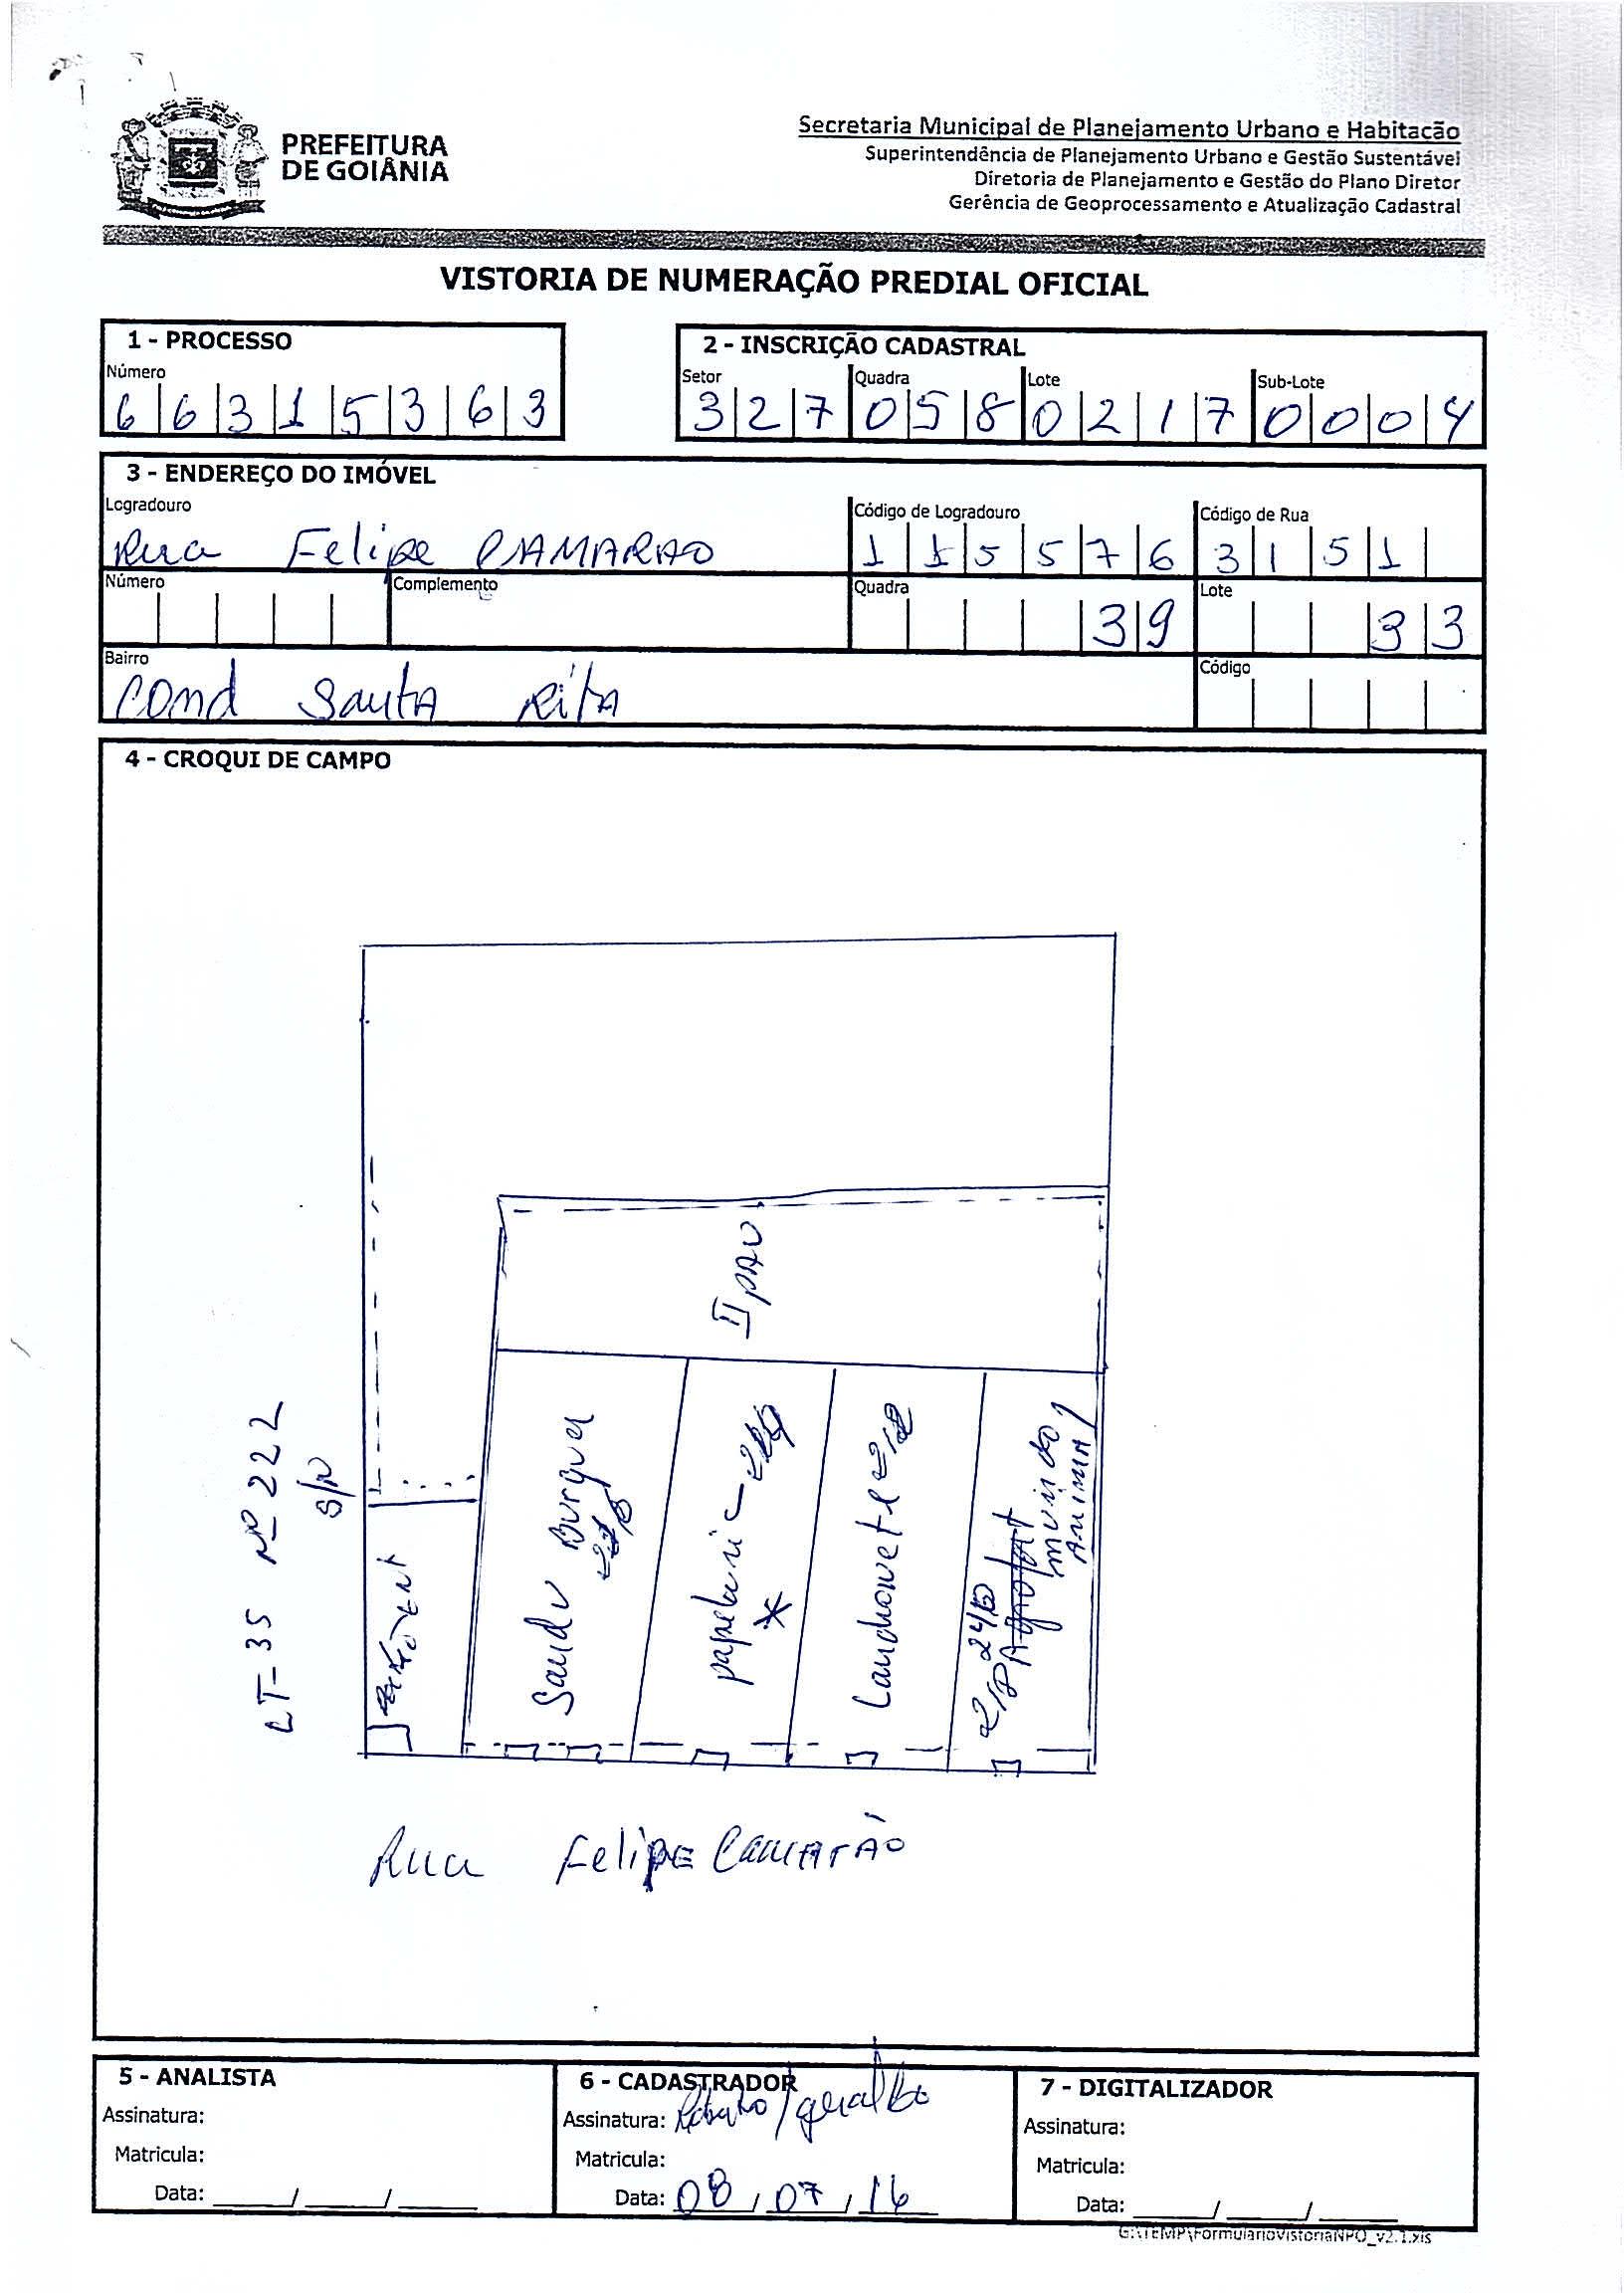 PREFEITURA
DE GOIÂNIA
Secretaria Municipal de Planejamento Urbano e Habitação
Superintendência de Planejamento Urbano e Gestão Sustentável
Diretoria de Planejamento e Gestão do Plano Diretor
Gerência de Geoprocessamento e Atualização Cadastral
VISTORIA DE NUMERAÇÃO PREDIAL OFICIAL
1 - PROCESSO
Número
6 6 3 1 5 3 6 3
2 - INSCRIÇÃO CADASTRAL
Setor Quadra Lote Sub-Lote
3 2 7 0 5 8 0 2 1 7 0 0 0 4
3 - ENDEREÇO DO IMÓVEL
Logradouro Código de Logradouro Código de Rua
Rua Felipe CAMARAO 1 1 5 5 7 6 3 1 5 1
Número Complemento Quadra Lote
3 9 3 3
Bairro Código
COnd Santa Rita
4 - CROQUI DE CAMPO
II PAV
LT-35 Nº 222
S/N
Sandu Burguer
papelaria
*
Lanchonete
mundo
Animal
Rua Felipe Camarão
5 - ANALISTA
Assinatura:
Matricula:
Data: / /
6 - CADASTRADOR
Assinatura: / geraldo
Matricula:
Data: 08 / 07 / 16
7 - DIGITALIZADOR
Assinatura:
Matricula:
Data: / /
G:\TEMP\FormularioVistoriaNPO_v2.1.xls